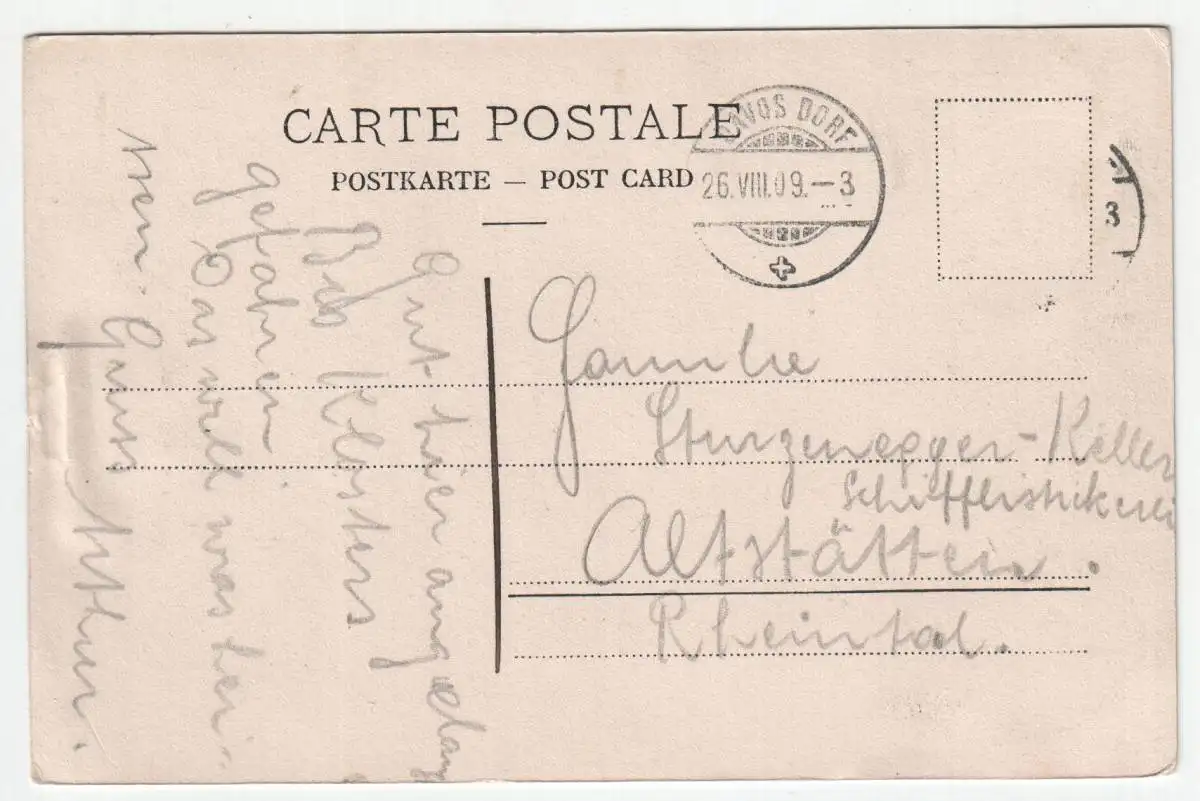 CARTE POSTALE
POSTKARTE — POST CARD
DAVOS DORF
26.VIII.09.–3
3
Gut hier angelang
Bis Klosters
gefahren
Das will was hei-
ssen. Gruss
Arthur.
Familie
Sturzenegger-Keller
Schifflistickerei
Altstätten.
Rheintal.